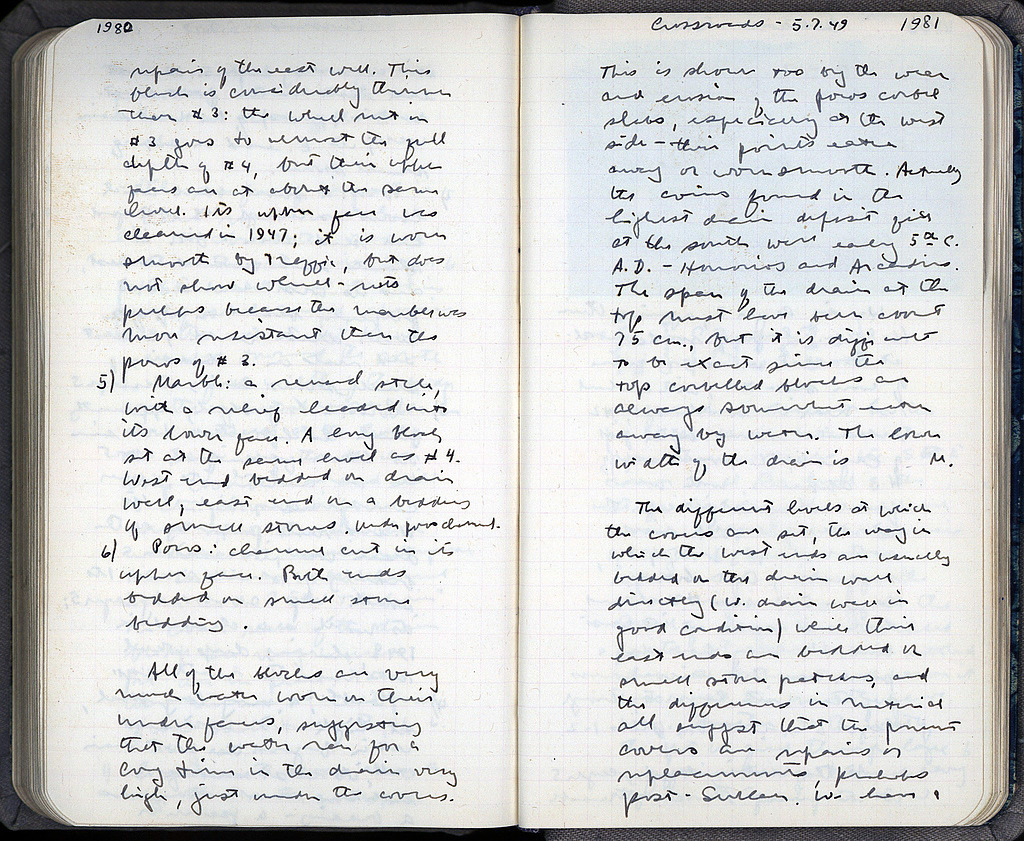 1980
repairs of the east wall. This
block is considerably thinner
than #3: the wheel rut in
#3 goes to almost the full
depth of #4, but their upper
faces are at about the same
level. Its upper face was
cleaned in 1947; it is worn
smooth by traffic, but does
not show wheel-ruts
perhaps because the marble was
more resistant than the
poros of #3.
5) Marble: a reused stele,
with a relief leaded into
its lower face. A long block
set at the same level as #4.
West end bedded on drain
wall, east end on a bedding
of small stones under poros channel.
6) Poros: channel cut in its
upper face. Both ends
bedded on small stone
bedding.
All of the blocks are very
much water worn on their
under faces, suggesting
that the water ran for a
long time in the drain very
high, just under the covers.
Crossroads - 5.7.49 1981
This is shown too by the wear
and erosion of the poros corbel
slabs, especially on the west
side - their points eaten
away or worn smooth. Actually
the coins found in the
highest drain deposit
at the south were early 5th C.
A.D. - Honorios and Arcadios.
The span of the drain at the
top must have been about
75 cm., but it is difficult
to be exact since the
top corbelled blocks are
always somewhat worn
away by water. The lower
width of the drain is M.
The different levels at which
the covers are set, the way in
which the west ends are usually
bedded on the drain wall
directly (W. drain wall in
good condition) while their
east ends are bedded on
small stone patches, and
the differences in material
all suggest that the present
covers are repairs or
replacements, perhaps
post-Sullan. We have